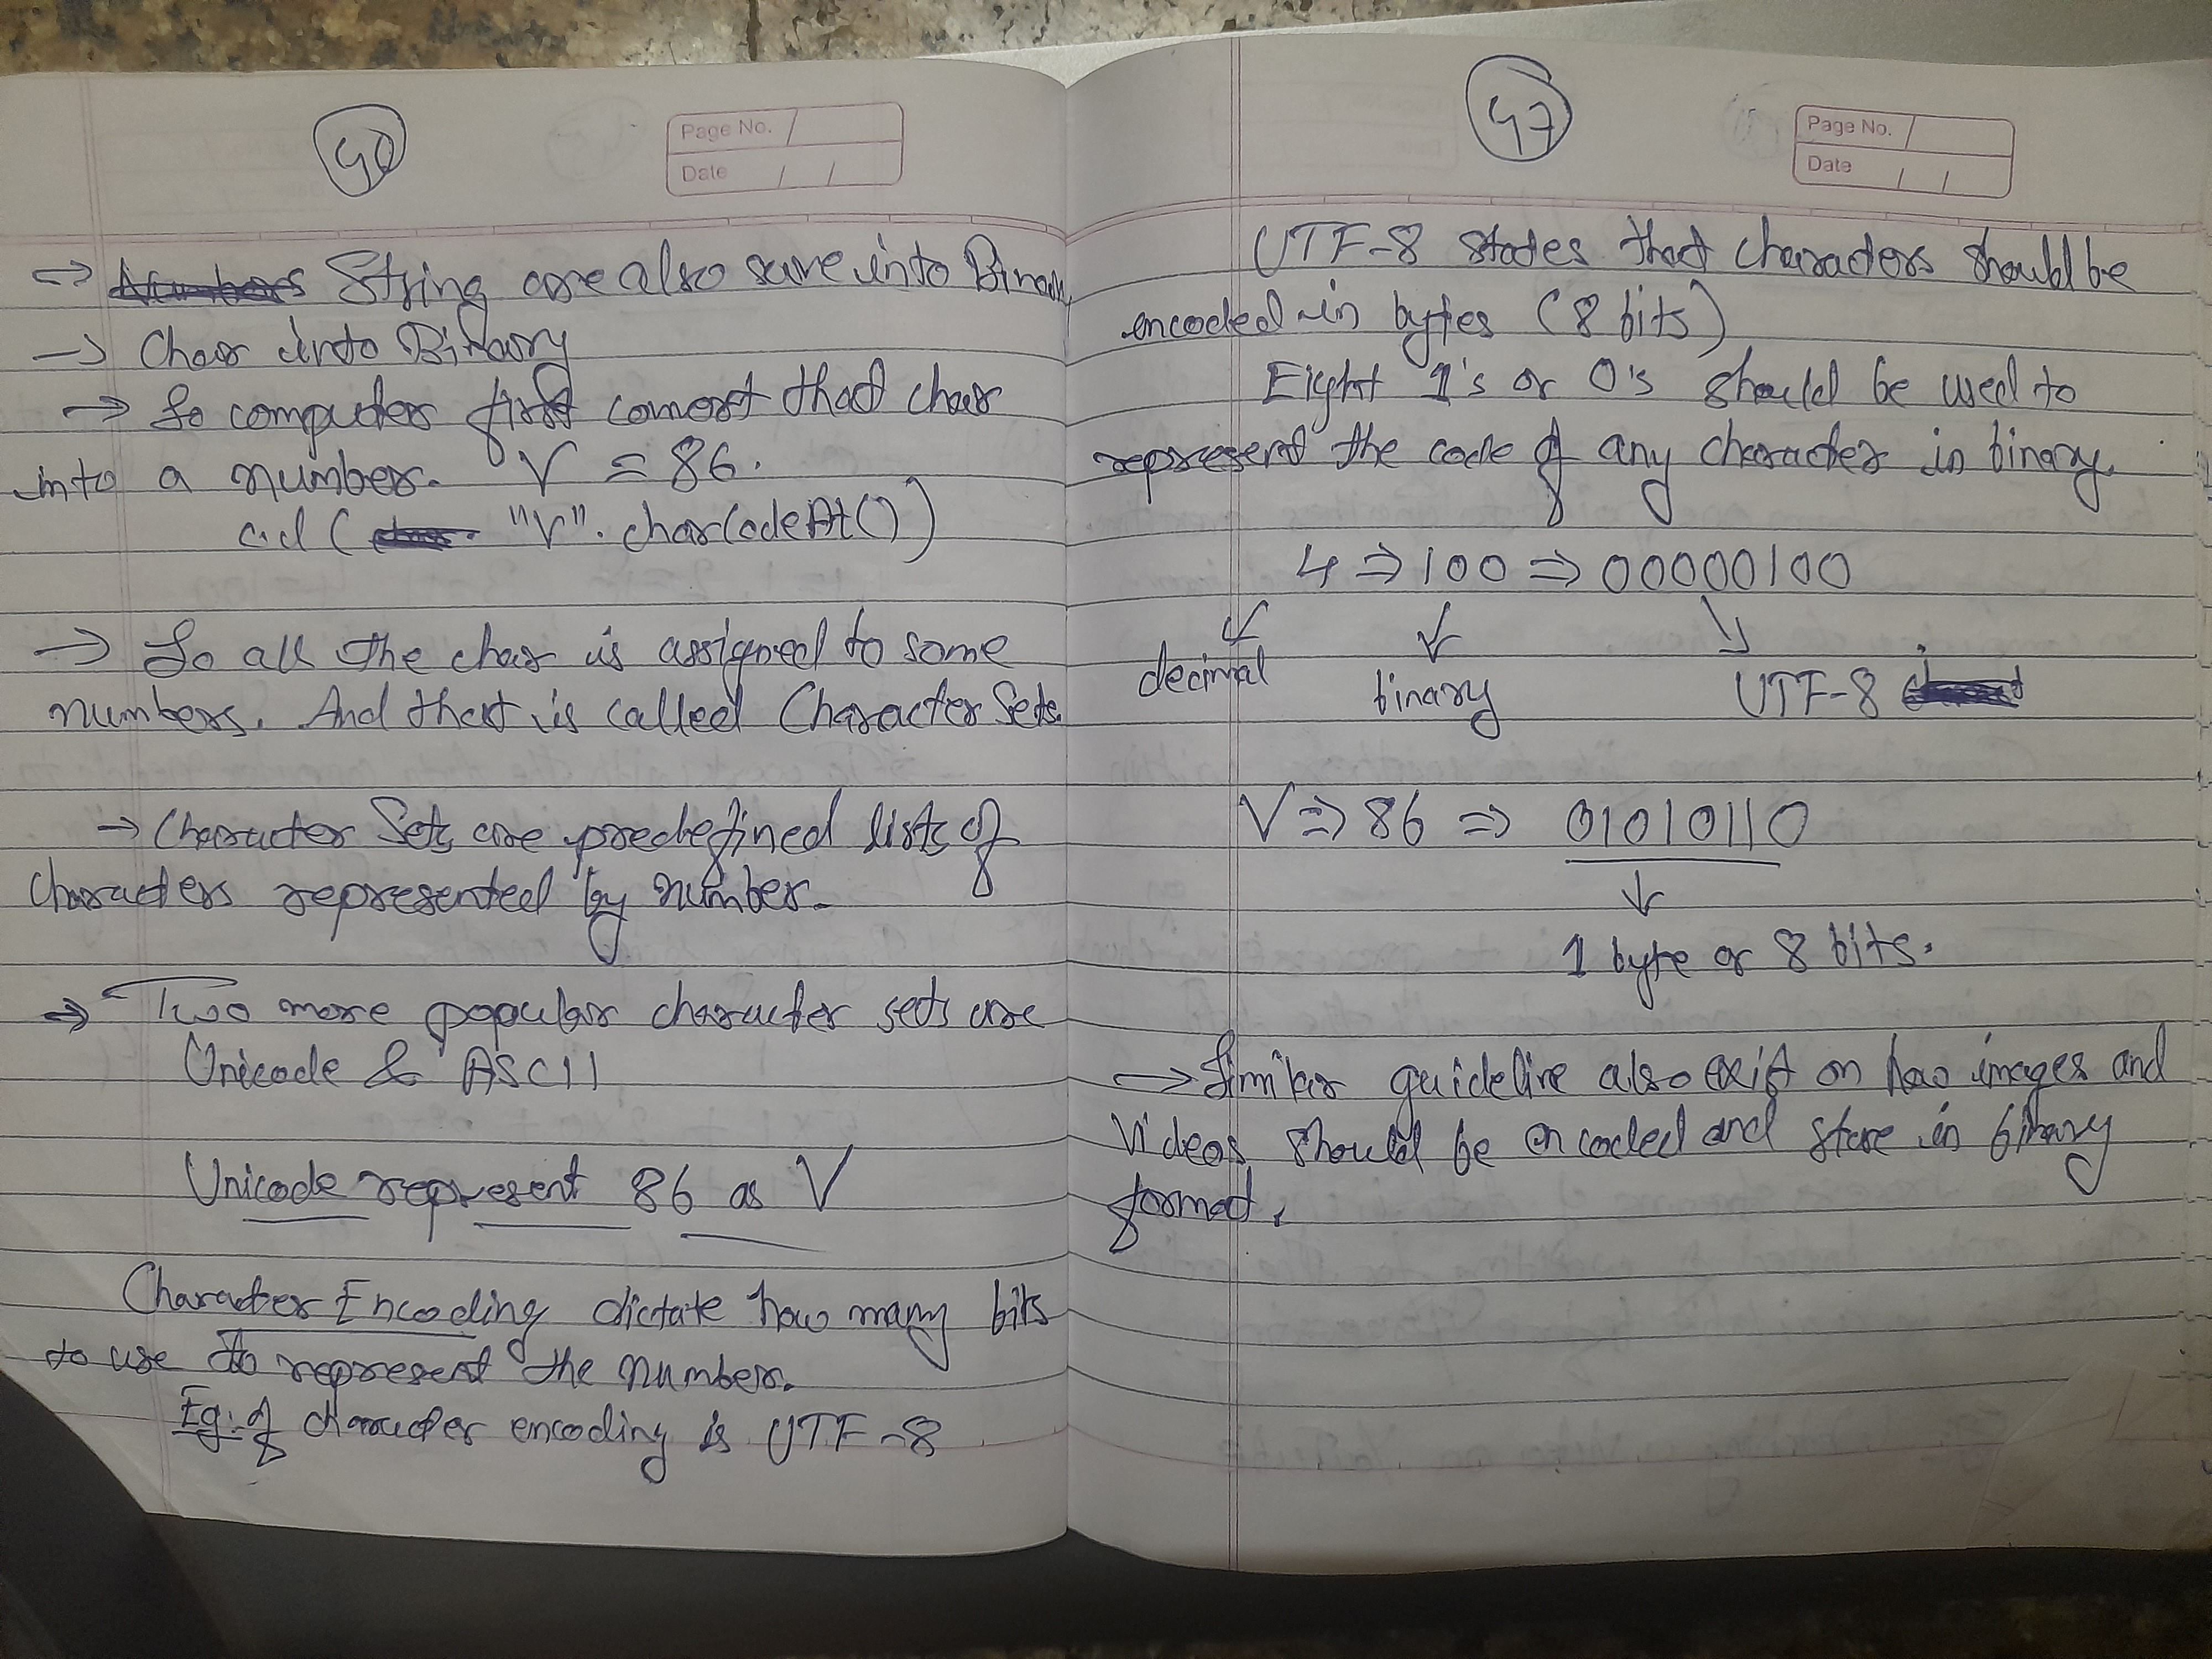 Page No.
Date / /
⇒ String are also save into Binary
→ Char into Binary
→ So computer first convert that char
into a number. V = 86.
c.l ( "V". charCodeAt())
→ So all the char is assigned to some
numbers. And that is called Character Sets.
→ Character Sets are predefined lists of
characters represented by number.
⇒ Two more popular character sets are
Unicode & ASCII
Unicode represent 86 as V
Character Encoding dictate how many bits
to use to represent the number.
Eg: of character encoding is UTF-8
47
Page No.
Date / /
UTF-8 states that characters should be
encoded in bytes (8 bits)
Eight 1's or 0's should be used to
represent the code of any character in binary.
4 ⇒ 100 ⇒ 00000100
decimal binary UTF-8
V ⇒ 86 ⇒ 01010110
1 byte or 8 bits.
→ Similar guideline also exist on how images and
Videos should be encoded and store in binary
format.